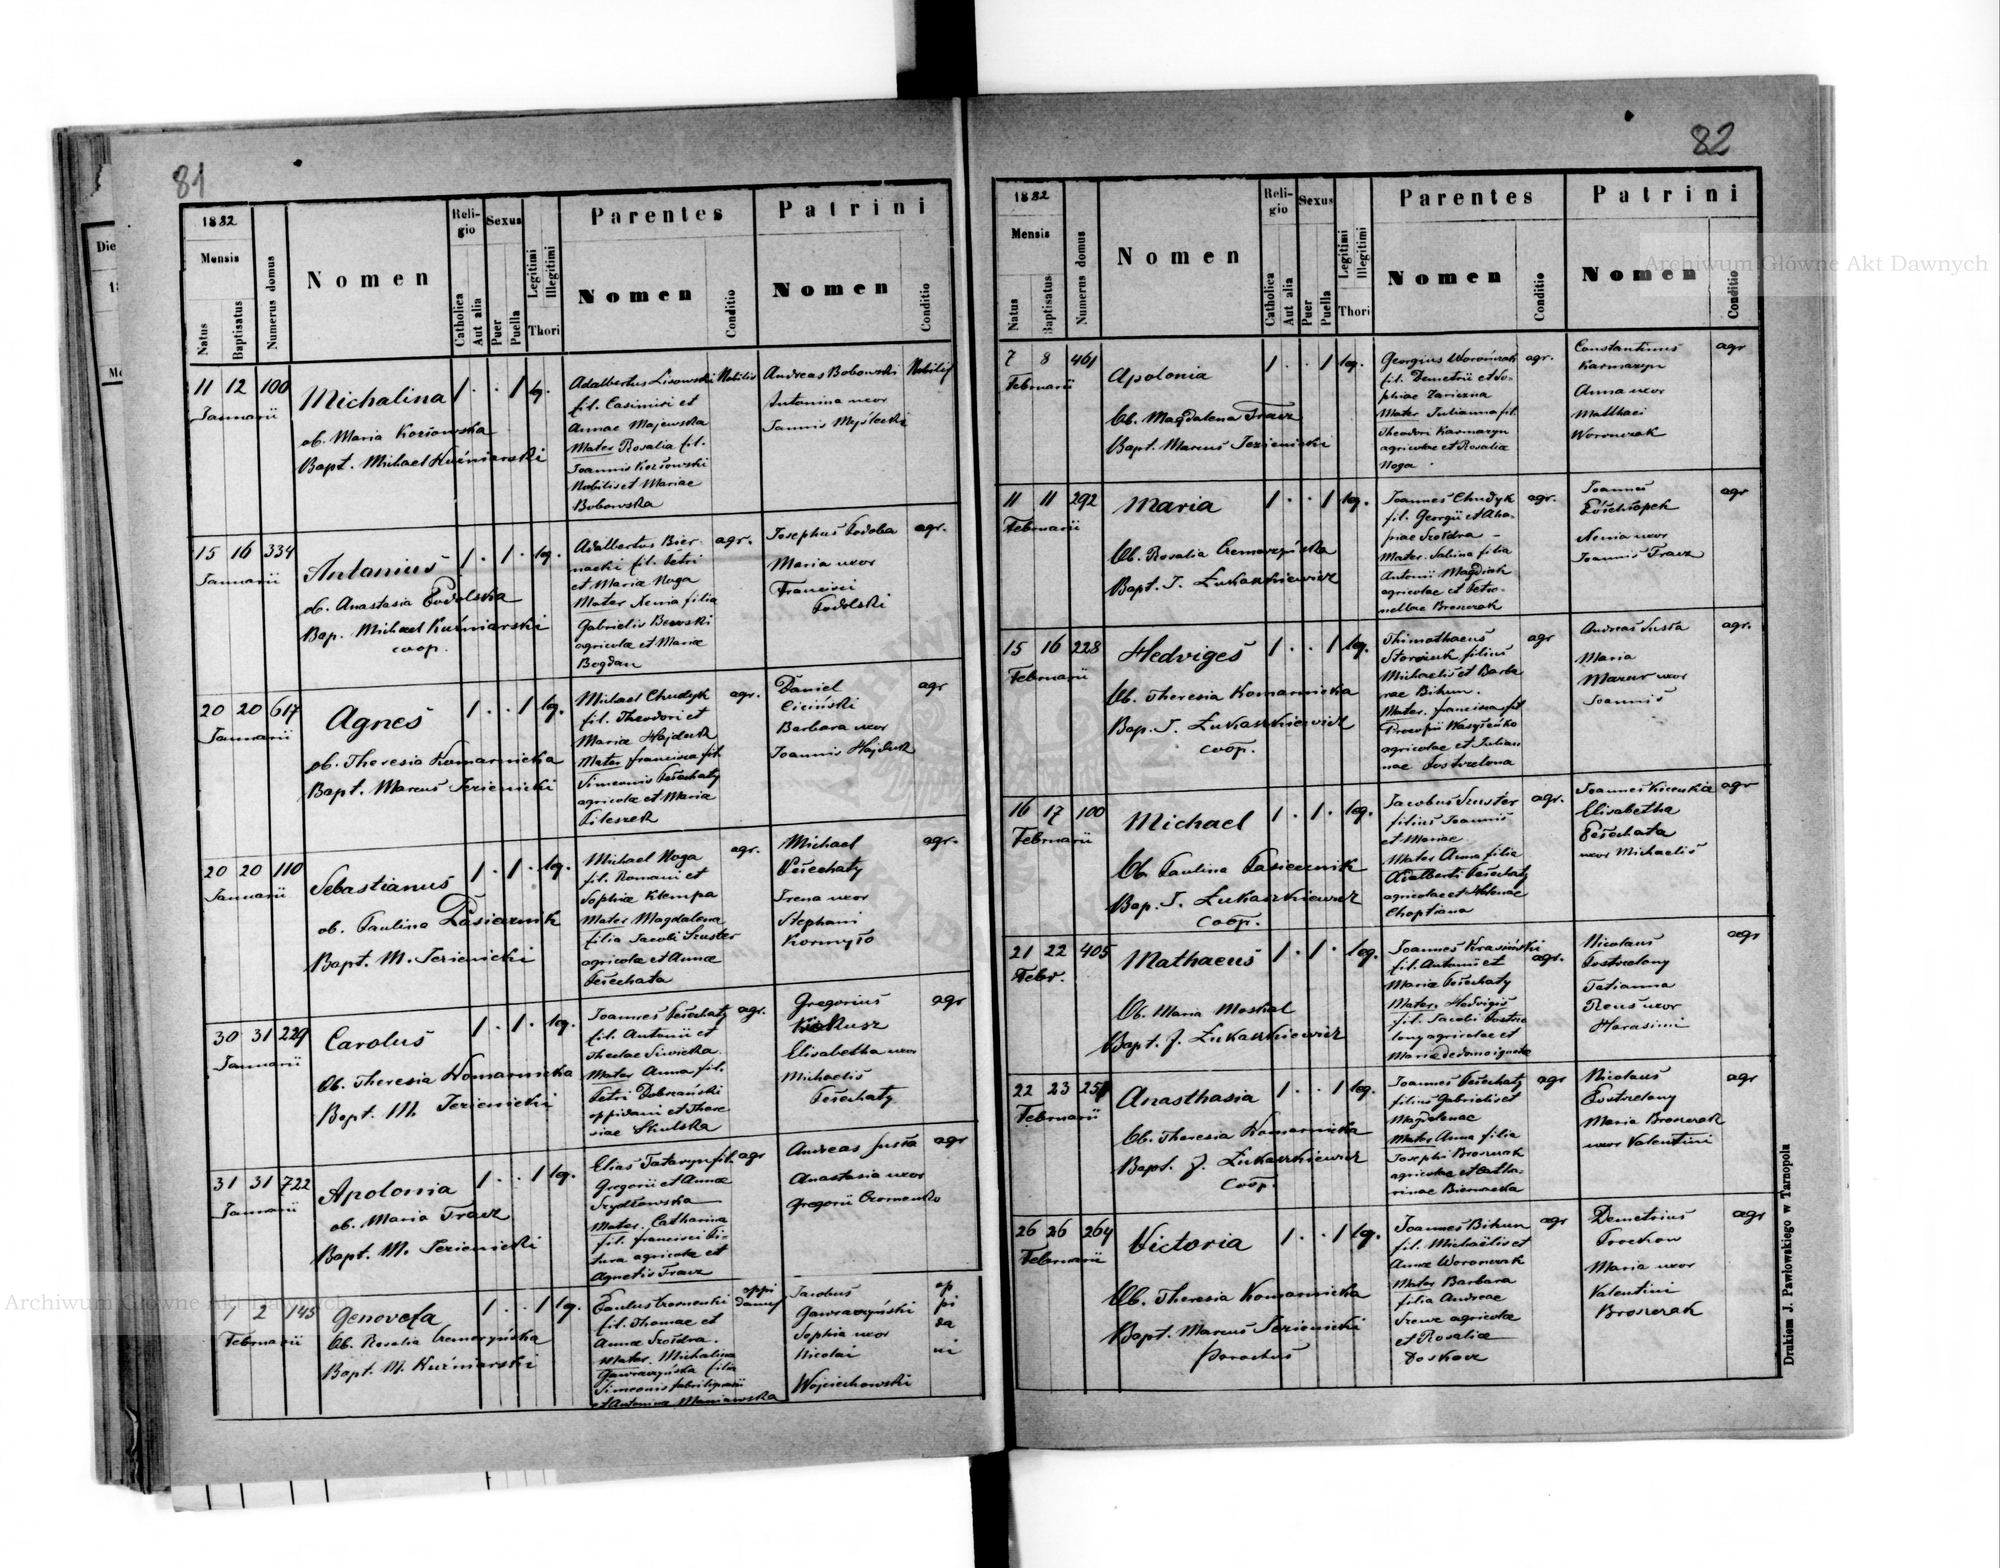 81
1882
Mensis
Natus
Baptisatus
Numerus domus
Nomen
Religio
Catholica
Aut alia
Sexus
Puer
Puella
Legitimi
Illegitimi
Thori
Parentes
Nomen
Conditio
Patrini
Nomen
Conditio
11 12 100
Januarii
Michalina
ob. Maria Kozłowska
Bapt. Michael Kuźniarski
1 . . 1 leg.
Adalbertus Lisowski Nobilis
fil. Casimiri et
Annae Majewska
Mater Rosalia fil.
Joannis Kozłowski
Nobilis et Mariae
Bobowska
Andreas Bobowski Nobilis
Antonina uxor
Joannis Myślecki
15 16 334
Januarii
Antonius
ob. Anastasia Podolska
Bap. Michael Kuźniarski
coop.
1 . 1 . leg.
Adalbertus Bier-
nacki fil. Petri
et Mariae Noga
Mater Xenia filia
Gabrielis Berski
agricolae et Mariae
Bogdan
agr.
Josephus Podoba
Maria uxor
Francisci
Podolski
agr.
20 20 617
Januarii
Agnes
ob. Theresia Komarnicka
Bapt. Marcus Jezienicki
1 . . 1 leg.
Michael Chudyk
fil. Theodori et
Mariae Hajduk
Mater Francisca fil.
Simeonis Pełechaty
agricolae et Mariae
Pileszek
agr.
Daniel
Ciciński
Barbara uxor
Joannis Hajduk
agr
20 20 110
Januarii
Sebastianus
ob. Paulina Pasiecznik
Bapt. M. Jezienicki
1 . 1 . leg.
Michael Noga
fil. Romani et
Sophiae Klempa
Mater Magdalena
filia Jacobi Szuster
agricolae et Annae
Pełechata
agr.
Michael
Pełechaty
Irena uxor
Stephani
Kormyło
agr.
30 31 229
Januarii
Carolus
Ob. Theresia Komarnicka
Bapt. M Jezienicki
1 . 1 . leg.
Joannes Pełechaty
fil. Antonii et
Theclae Siwicka.
Mater Anna fil.
Petri Dobrzański
oppidani et There
siae Skulska
agr.
Gregorius
Elisabetha uxor
Michaelis
Pełechaty
agr
31 31 722
Januarii
Apolonia
ob. Maria Tracz
Bapt. M. Jezienicki
1 . . 1 leg.
Elias Tataryn fil.
Gregorii et Annae
Szydłowska
Mater. Catharina
fil. Francisci Pi-
tura agricolae et
Agnetis Tracz
agr
Andreas Justa
Anastasia uxor
Gregorii Cromenko
agr
1 2 145
Februarii
Genovefa
Ob. Rosalia Cremeryńska
Bapt. M. Kuźniarski
1 . . 1 leg.
Paulus
fil. Thomae et
Annae Szołdra.
Mater. Michalina
Gawraczyńska filia
Simeonis
et Antoninae Maniawska
oppi
danus
Jacobus
Gawraczyński
Sophia uxor
Nicolai
Wojciechowski
op
pi
da
ni
82
1882
Mensis
Natus
Baptisatus
Numerus domus
Nomen
Religio
Catholica
Aut alia
Sexus
Puer
Puella
Legitimi
Illegitimi
Thori
Parentes
Nomen
Conditio
Patrini
Nomen
Conditio
7 8 461
Februarii
Apolonia
Ob. Magdalena Tracz
Bapt. Marcus Jezienicki
1 . . 1 leg.
Georgius Woronczak
fil. Demetrii et So-
phiae Zariczna
Mater Julianna fil.
Theodori Karmazyn
agricolae et Rosaliae
Noga
agr.
Constantinus
Karmazyn
Anna uxor
Matthaei
Woronczak
agr
11 11 292
Februarii
Maria
Ob. Rosalia Cremeryńska
Bapt. J. Łukaszkiewicz
1 . . 1 leg.
Joannes Chudyk
fil. Georgii et Aga-
phiae Szołdra
Mater. Sabina filia
Antonii Magdiak
agricolae et Petro-
nellae Broszczak
agr.
Joannes
Xenia uxor
Joannis Tracz
agr
15 16 228
Februarii
Hedviges
Ob. Theresia Komarnicka
Bap. J. Łukaszkiewicz
coop.
1 . . 1 leg.
Thimothaeus
Storożuk filius
Michaelis et Barba
rae Bihun.
Mater. Francisca fil
Procopii Wasyleńko
agricolae et Julian
nae Postrzelona
agr
Andreas Justa
Maria
Mazur uxor
Joannis
agr.
16 17 100
Februarii
Michael
Ob. Paulina Pasiecznik
Bap. J. Łukaszkiewicz
coop.
1 . 1 . leg.
Jacobus Szuster
filius Joannis
et Mariae
Mater Anna filia
Adalberti Pełechaty
agricolae et Helenae
Choptiana
agr.
Joannes
Elisabetha
Pełechata
uxor Michaelis
agr
21 22 405
Febr.
Mathaeus
Ob. Maria Moskal
Bapt. J. Łukaszkiewicz
1 . 1 . leg.
Joannes Krasiński
fil. Antonii et
Mariae Pełechaty
Mater. Hedvigis
fil. Jacobi Postrze
lony agricolae et
Mariae de domo ignota
agr.
Nicolaus
Postrzelony
Tatianna
Reus uxor
Harasimi
agr
22 23 251
Februarii
Anasthasia
Ob. Theresia Komarnicka
Bapt. J. Łukaszkiewicz
Coop.
1 . . 1 leg.
Joannes Pełechaty
filius Gabrielis et
Magdalenae
Mater Anna filia
Josephi Broszczak
agricolae et Catha-
rinae Biernacka
agr
Nicolaus
Postrzelony
Maria Broszczak
uxor Valentini
agr
26 26 264
Februarii
Victoria
Ob. Theresia Komarnicka
Bapt. Marcus Jezienicki
Parochus
1 . . 1 leg.
Joannes Bihun
fil. Michaëlis et
Annae Woronczak
Mater Barbara
filia Andreae
Szewc agricolae
et Rosaliae
Doskocz
agr
Demetrius
Maria uxor
Valentini
Broszczak
agr
Drukiem J. Pawłowskiego w Tarnopolu
Archiwum Główne Akt Dawnych
Archiwum Główne Akt Dawnych